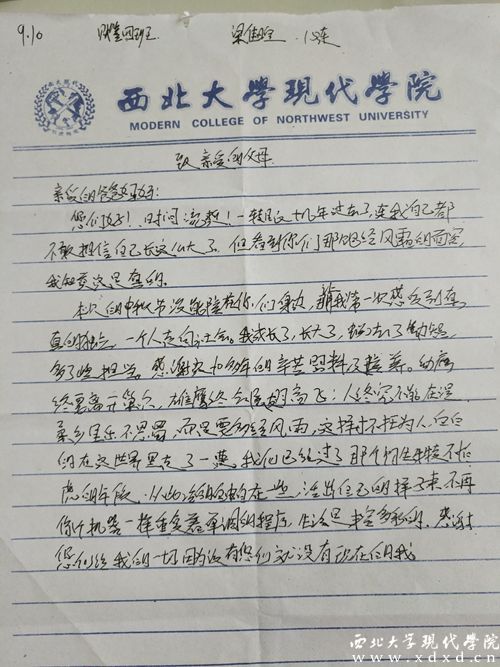 9.10 四班 梁 12连
西北大學現代學院
MODERN COLLEGE OF NORTHWEST UNIVERSITY
致亲爱的父母
亲爱的爸爸妈妈:
您们好!时间流逝!一转眼十几年过去了,连我自己都
不敢相信自己长这么大了。但看到你们那饱经风霜的面容,
我知道这是真的。
本次的中秋节没能陪在你们身边,我第一次感受到真
真的独立,一个人走向社会。我成长了,长大了,了
多了些担当。感谢这十多年的辛苦照料及栽养。幼
终要离开,雄鹰终会展翅高飞;人终究不能在温
柔乡里乐不思蜀,而是要多经风雨,这样才不枉为人,白白
的在这世界里走了一趟。我们已经过了那个
的年纪,从此活的在一些,活出自己的样子来,不再
像个机器一样重复着单调的程序,生活是丰富多彩的,感谢
您们给我的一切,因为没有您们就没有现在的我。
西北大学现代学院
www.xdxd.cn